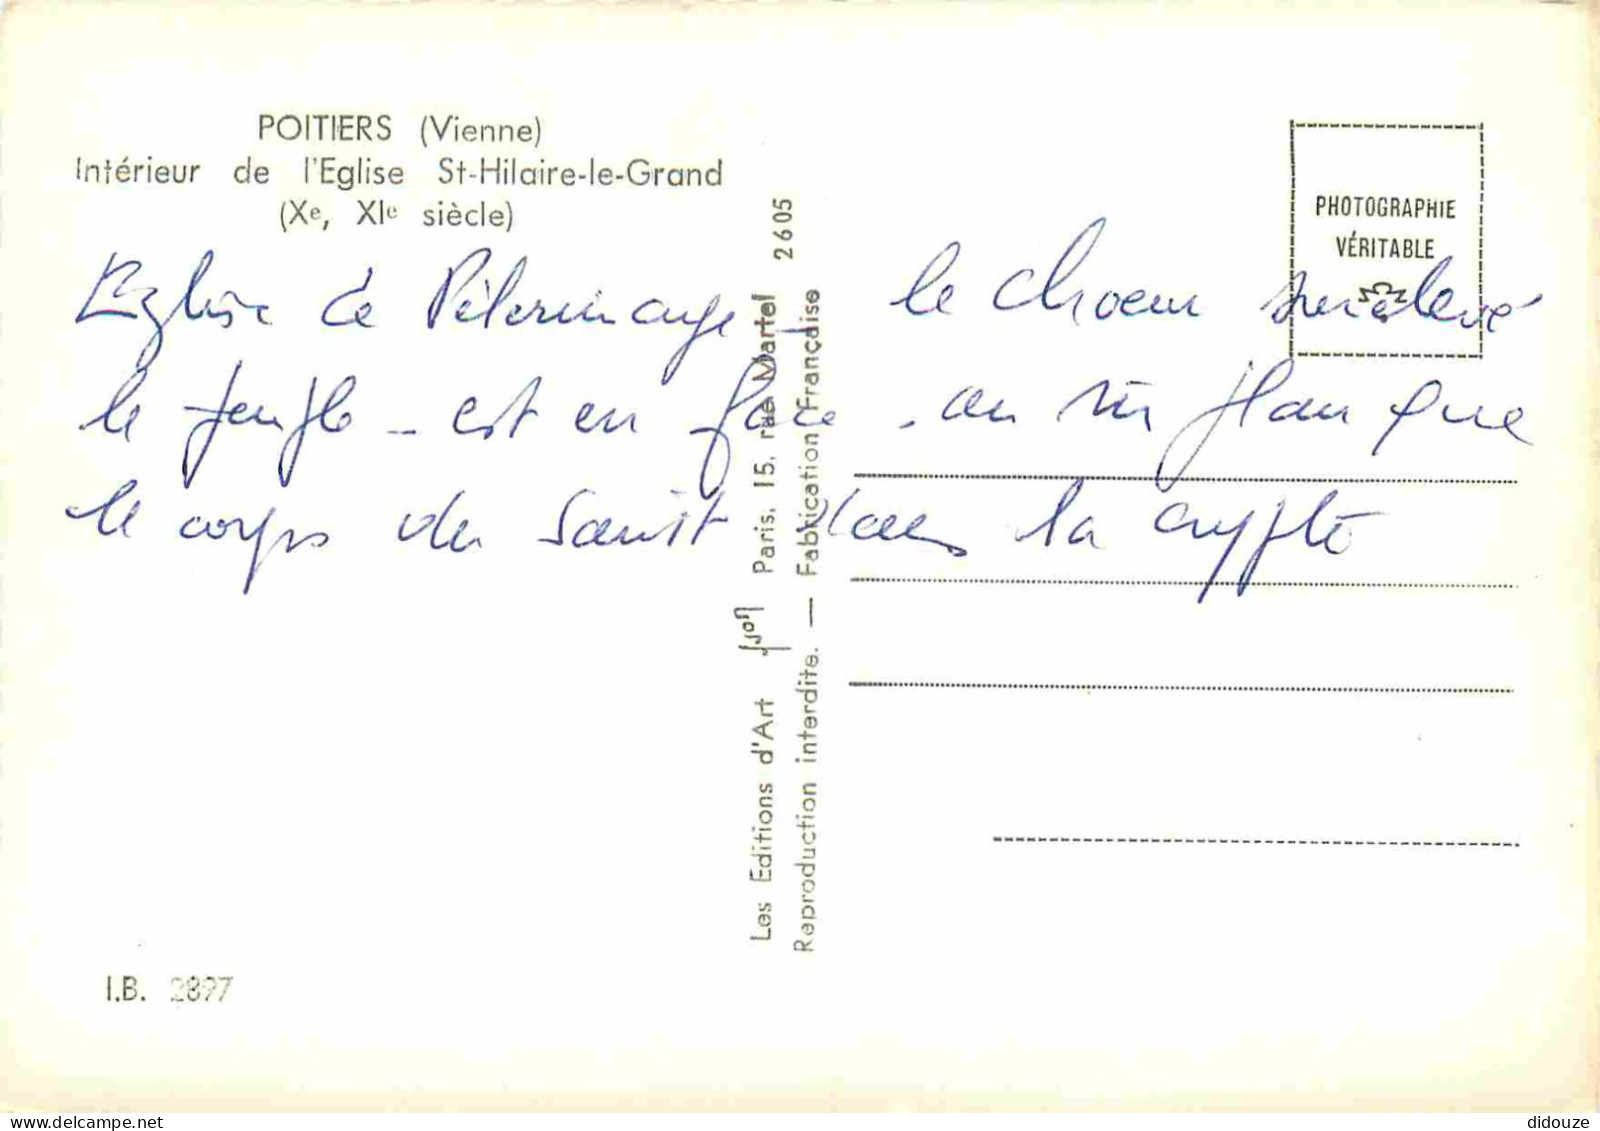 POITIERS (Vienne)
Intérieur de l'Eglise St-Hilaire-le-Grand
(Xe, XIe siècle)
PHOTOGRAPHIE
VÉRITABLE
Eglise de Pèlerinage - le choeur surélevé
le - est en face - on
le corps du Saint dans la crypte
Les Editions d'Art yvon Paris, 15, rue Martel 2605
Reproduction interdite. — Fabrication Française
I.B. 2897
didouze